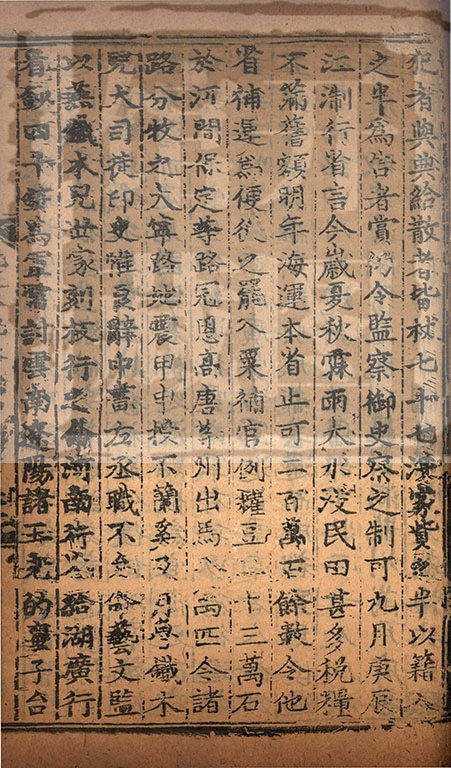 犯者與典給散者皆杖七十七没家貲之半以籍入
之半為告者賞仍令監察御史察之制可九月庚辰
江浙行省言今歲夏秋霖雨大水没民田甚多稅糧
不滿舊額明年海運本省止可二百萬石餘數令他
省補運為便從之罷入粟補官例糴豆二十三萬石
於河間保定等路冠恩高唐等州出馬八萬匹令諸
路分牧之大寧路地震甲申授不蘭奚及月魯鐵木
兒大司徒印史惟良辭中書左丞職不允命藝文監
以燕鐵木兒世家刻板行之河南行省給湖廣行
省鈔四千錠為軍需討雲南遼陽諸王老的蠻子台